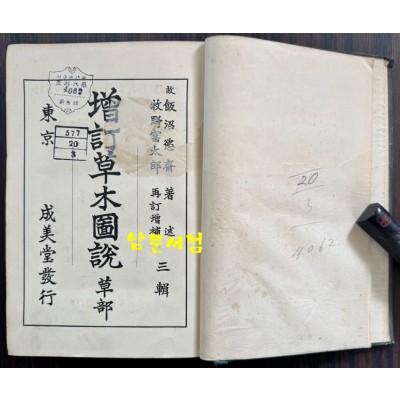 故 飯沼慾齋 著述
牧野富太郎 再訂增補
三輯
增訂草木圖說 草部
東京 成美堂發行
4062
577
20
3
남문서점
20
3
4062